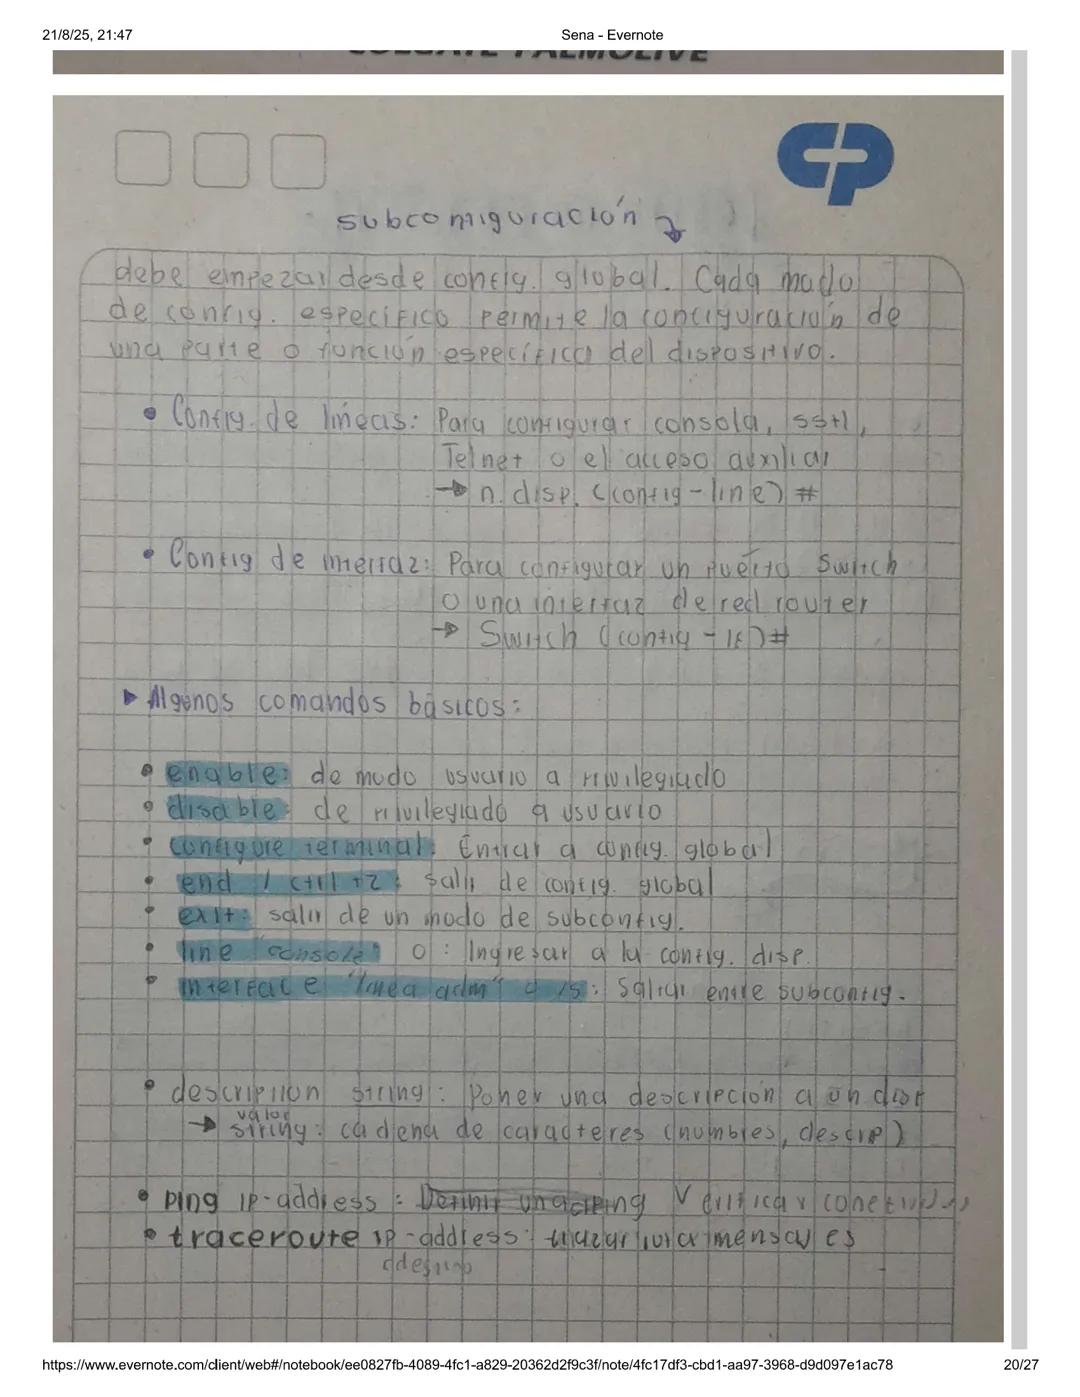 21/8/25, 21:47
Sena - Evernote
COLGATE PALMOLIVE
CP
subconfiguración
debe empezar desde config. global. Cada modo
de config. específico permite la configuración de
una parte o función específica del dispositivo.
• Config. de líneas: Para configurar consola, ssh,
Telnet o el acceso auxiliar
→ n. disp. (config-line) #
• Config de interfaz: Para configurar un puerto Switch
o una interfaz de red router
→ Switch (config - if)#
▸ Algunos comandos básicos:
• enable: de modo usuario a privilegiado
• disable: de privilegiado a usuario
• configure terminal: Entrar a config. global
• end / ctrl +z: salir de config. global
• exit: salir de un modo de subconfig.
• line "console" 0: Ingresar a la config. disp.
• interface "línea adm" 0 15: Saltar entre subconfig.
• description string: Poner una descripción a un disp
valor
→ string: cadena de caracteres (nombres, descrip)
• ping ip-address: Definir una ping Verificar
• traceroute ip-address: trazar ruta mensajes
a destino
https://www.evernote.com/client/web#/notebook/ee0827fb-4089-4fc1-a829-20362d2f9c3f/note/4fc17df3-cbd1-aa97-3968-d9d097e1ac78
20/27